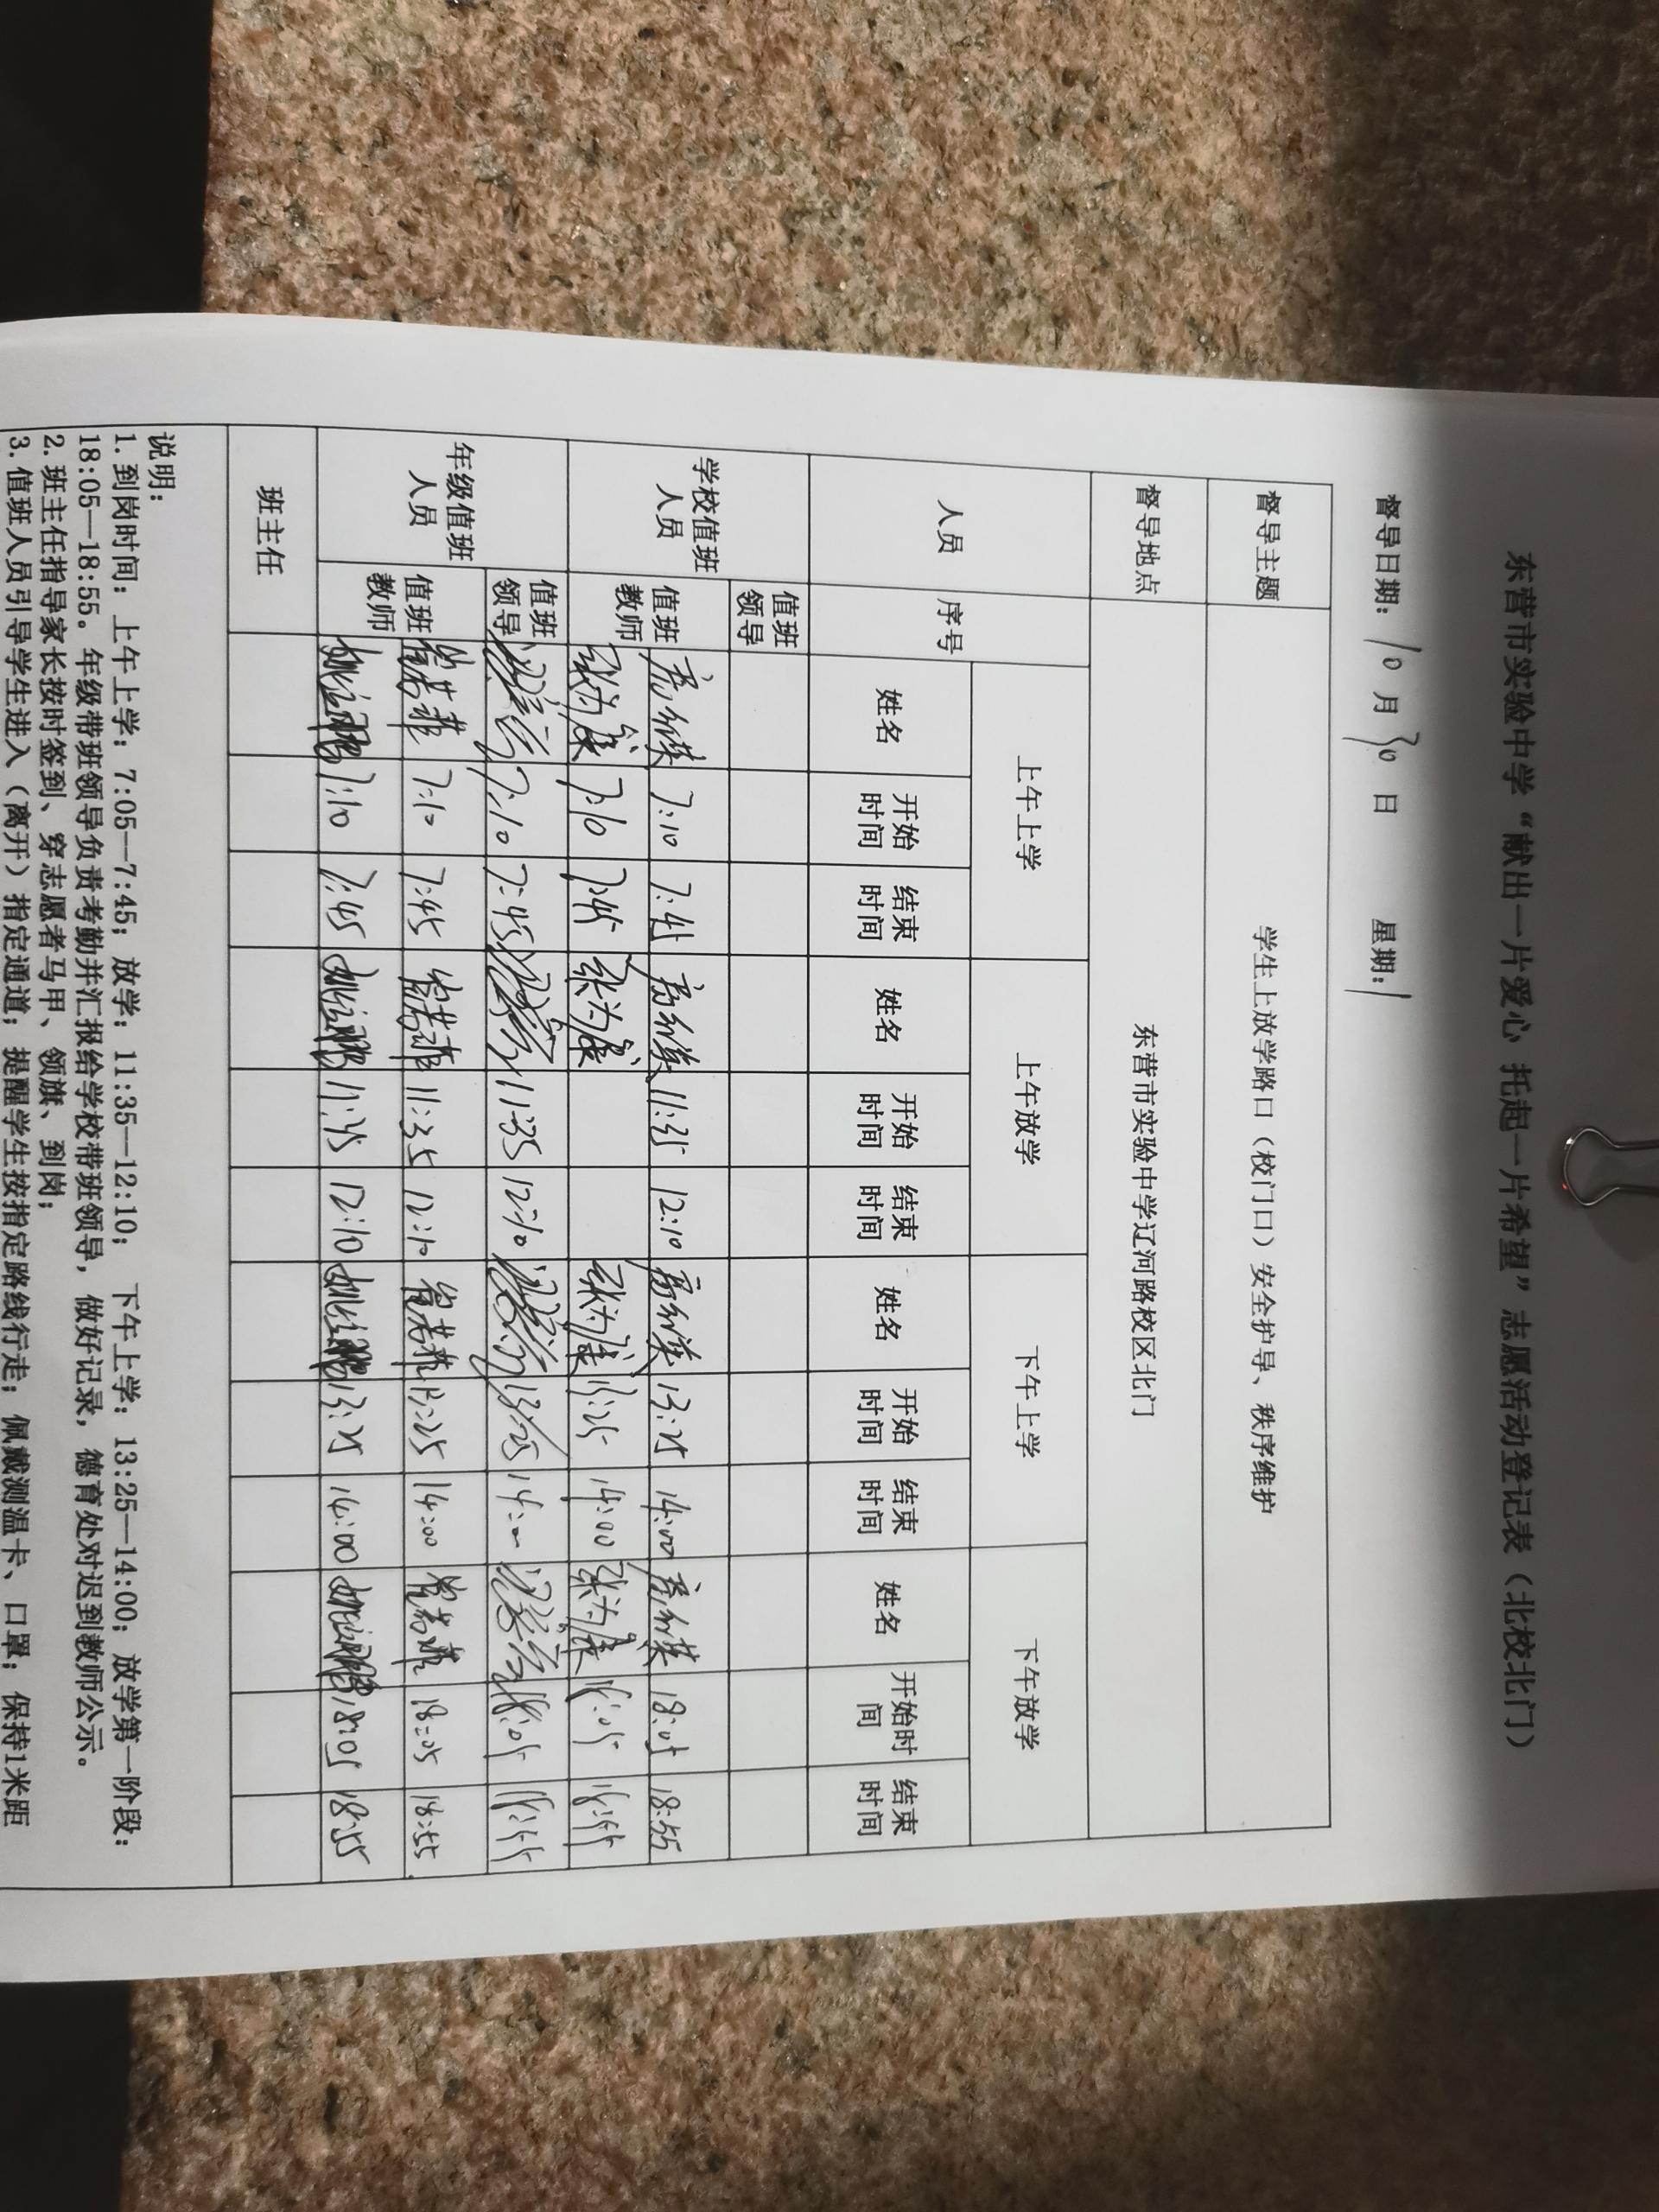 东营市实验中学“献出一片爱心 托起一片希望”志愿活动登记表（北校北门）
督导日期：10月30日 星期：1
督导主题 学生上放学路口（校门口）安全护导、秩序维护
督导地点 东营市实验中学辽河路校区北门
人员 序号 上午上学 上午放学 下午上学 下午放学
姓名 开始时间 结束时间 姓名 开始时间 结束时间 姓名 开始时间 结束时间 姓名 开始时间 结束时间
学校值班人员 值班领导
值班教师 7:10 7:45 11:35 12:10 13:25 14:00 18:05 18:55
张为康 7:10 7:45 张为康 张为康 13:25 14:00 张为康 18:05 18:55
年级值班人员 值班领导 7:10 7:45 11:35 12:10 13:25 14:00 18:05 18:55
值班教师 7:10 7:45 11:35 12:10 13:25 14:00 18:05 18:55
7:10 7:45 11:35 12:10 13:25 14:00 18:05 18:55
班主任
说明：
1.到岗时间：上午上学：7:05—7:45；放学：11:35—12:10； 下午上学：13:25—14:00；放学第一阶段：
18:05—18:55。年级带班领导负责考勤并汇报给学校带班领导，做好记录，德育处对迟到教师公示。
2.班主任指导家长按时签到、穿志愿者马甲、领旗、到岗；
3.值班人员引导学生进入（离开）指定通道；提醒学生按指定路线行走；佩戴测温卡、口罩；保持1米距